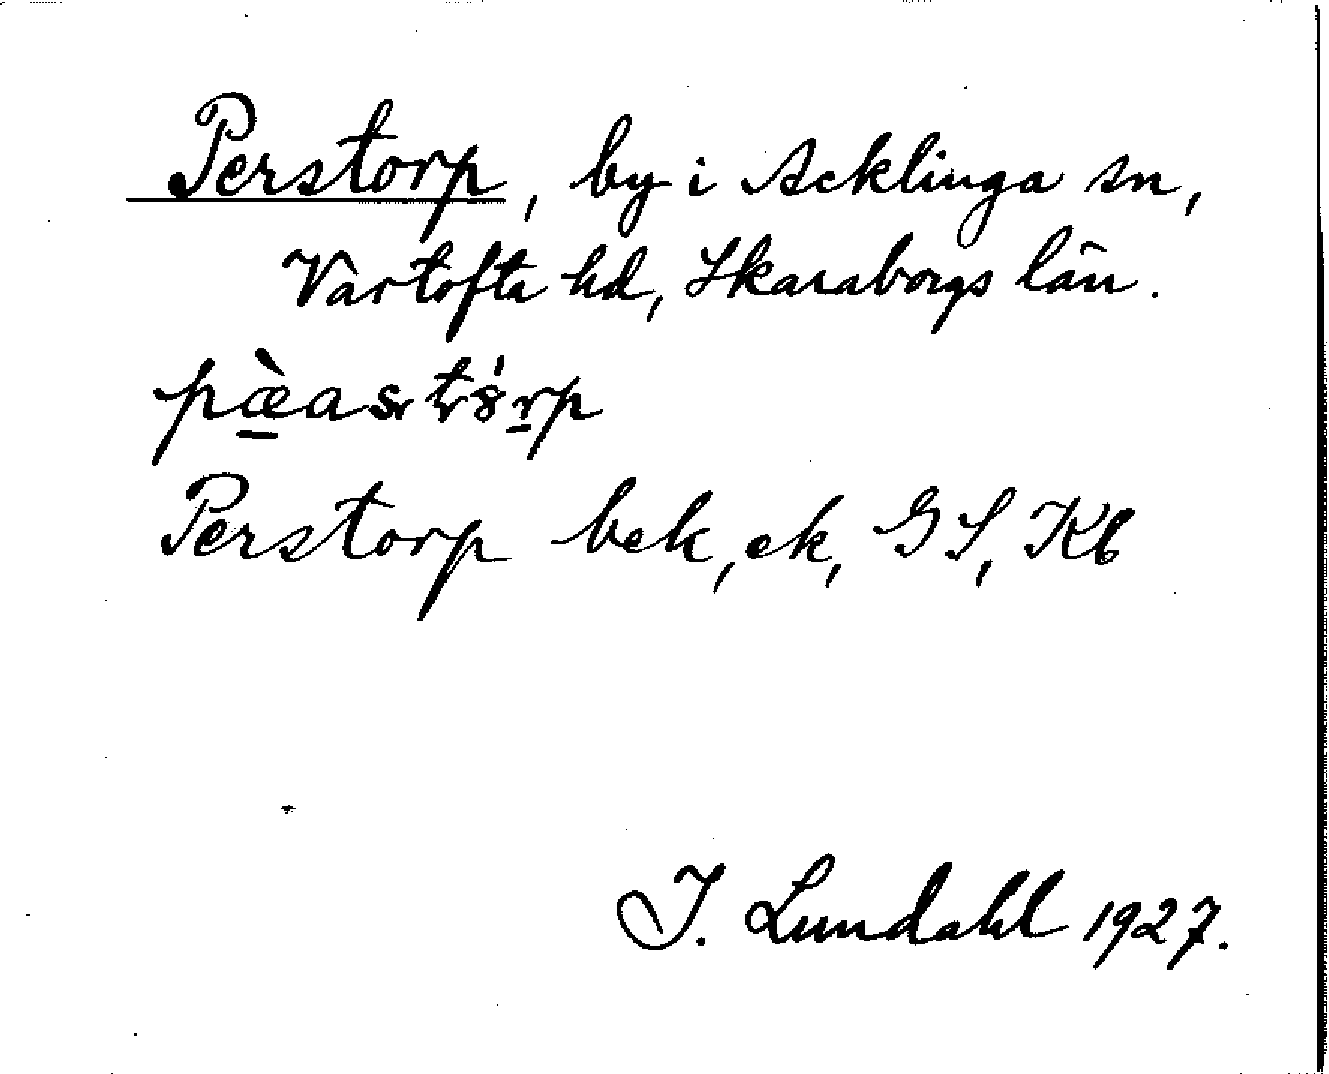 Perstorp, by i Acklinga sn,
Vartofta hd, Skaraborgs län.
Perstorp bek, ek, GS, Kb
I. Lundahl 1927.